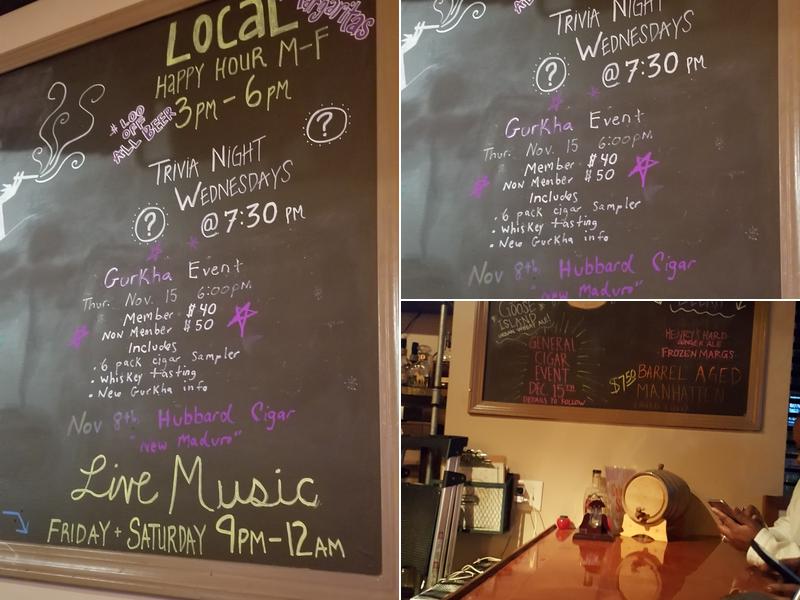 Margaritas
LOCAL
HAPPY HOUR M-F
3PM - 6PM
* 1.00
OFF
ALL BEER
?
TRIVIA NIGHT
WEDNESDAYS
? @ 7:30 PM
Gurkha Event
Thur. Nov. 15 6:00pm
Member $40
Non Member $50
Includes
• 6 pack cigar sampler
• Whiskey tasting
• New Gurkha info
Nov 8th Hubbard Cigar
"New Maduro"
Live Music
FRIDAY + SATURDAY 9PM-12AM
TRIVIA NIGHT
WEDNESDAYS
? @ 7:30 PM
Gurkha Event
Thur. Nov. 15 6:00pm
Member $40
Non Member $50
Includes
• 6 pack cigar sampler
• Whiskey tasting
• New Gurkha info
Nov 8th Hubbard Cigar
"New Maduro"
GOOSE
ISLAND
GENERAL
CIGAR
EVENT
DEC 15TH
DETAILS TO FOLLOW
HENRY'S HARD
GINGER ALE
• FROZEN MARGS
$7.50 BARREL AGED
MANHATTEN